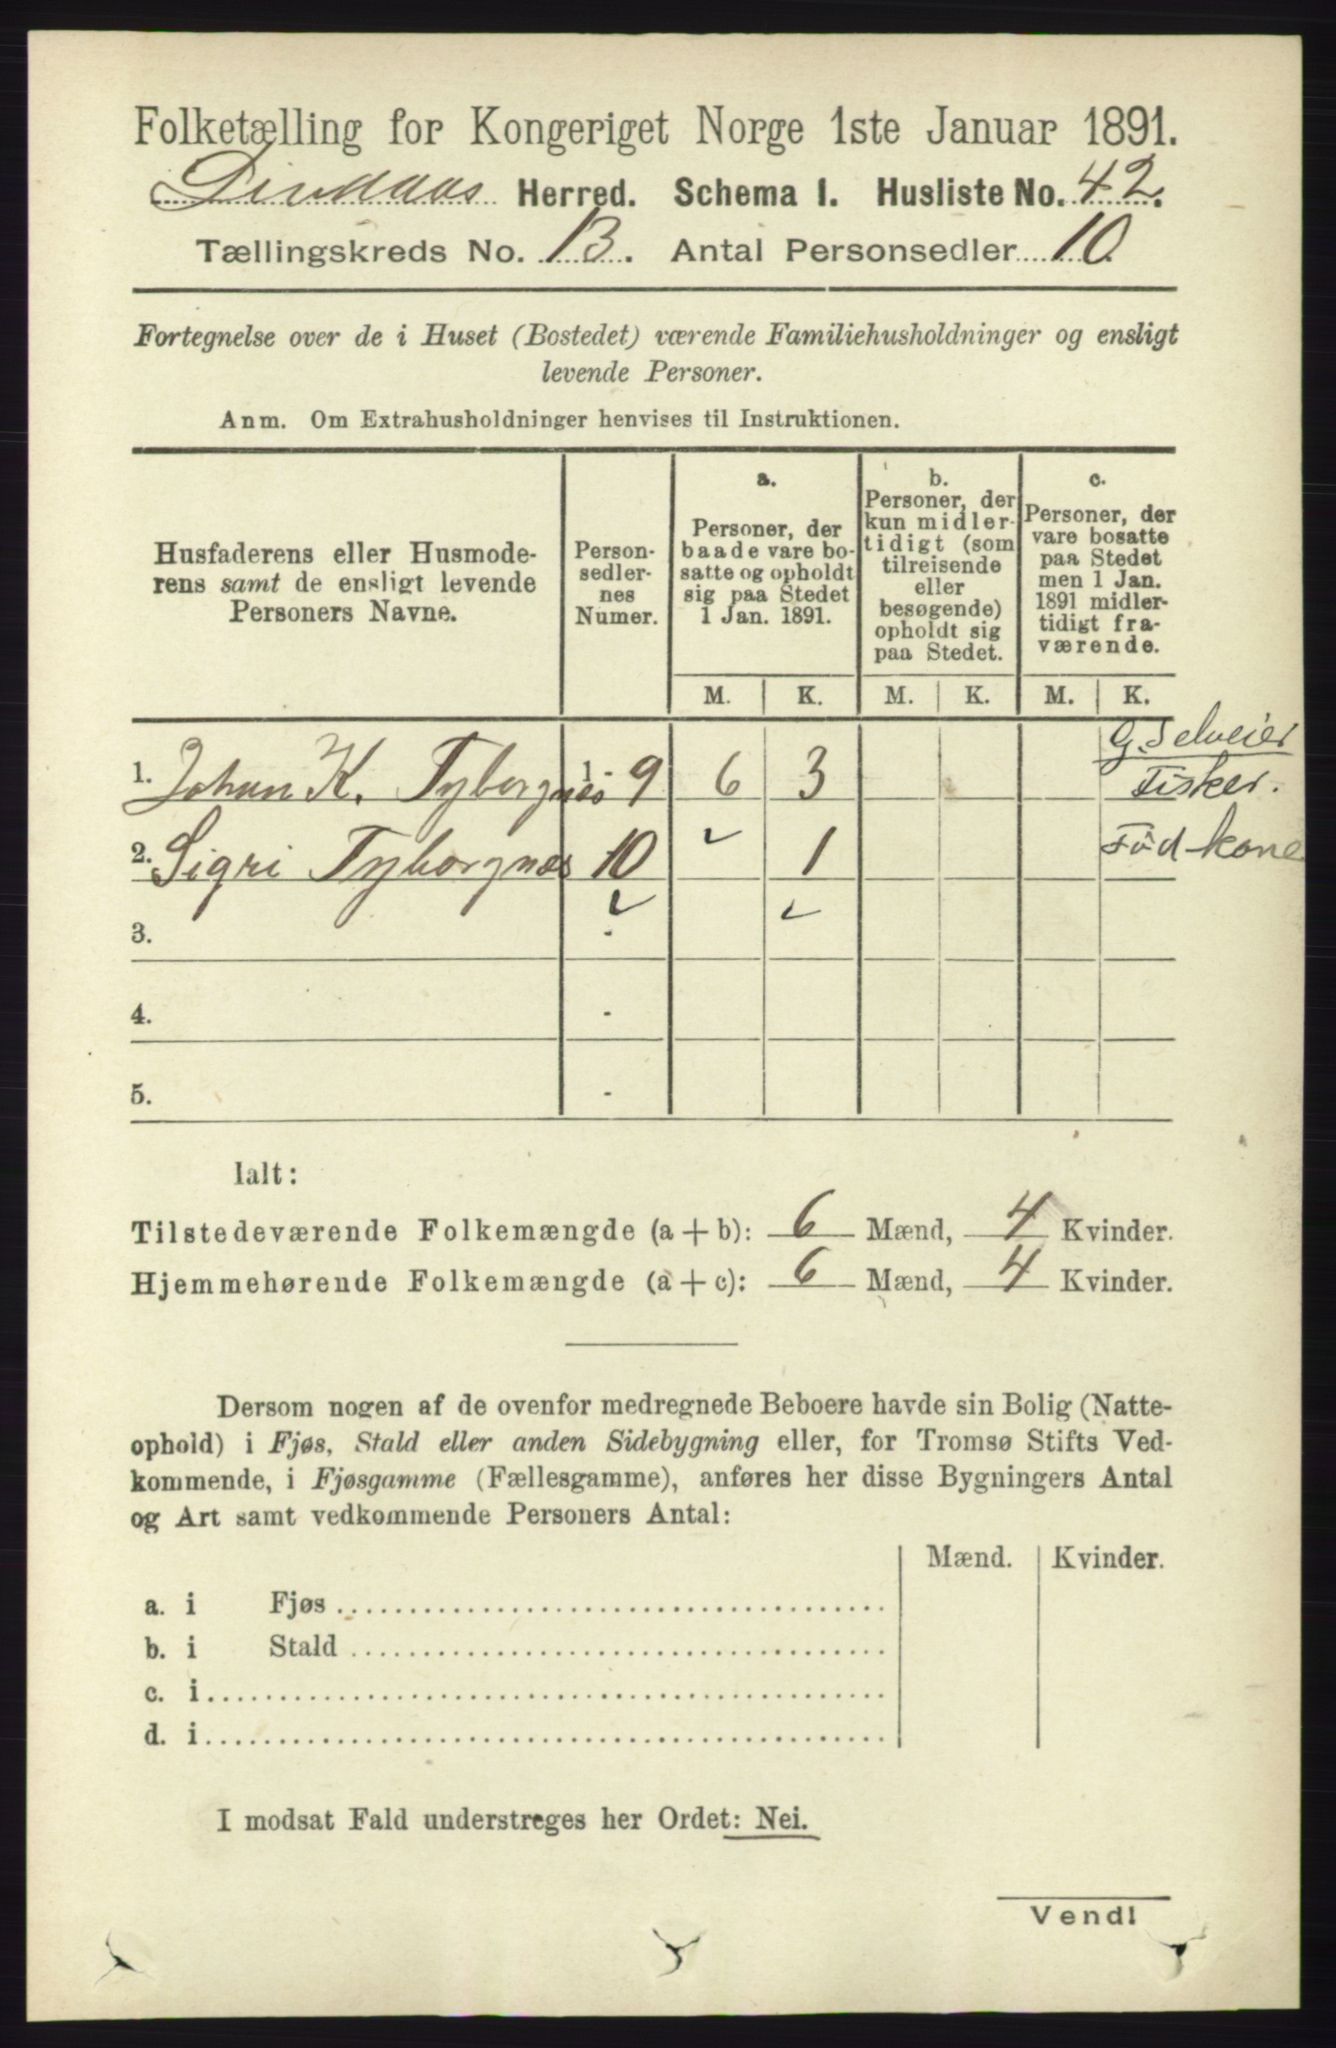 Folketælling for Kongeriget Norge 1ste Januar 1891.
Lindaas Herred. Schema I. Husliste No. 42.
Tællingskreds No. 13. Antal Personsedler 10
Fortegnelse over de i Huset (Bostedet) værende Familiehusholdninger og ensligt
levende Personer.
Anm. Om Extrahusholdninger henvises til Instruktionen.
Husfaderens eller Husmode-
rens samt de ensligt levende
Personers Navne.
Person-
sedler-
nes
Numer.
a.
Personer, der
baade vare bo-
satte og opholdt
sig paa Stedet
1 Jan. 1891.
b.
Personer, der
kun midler-
tidigt (som
tilreisende
eller
besøgende)
opholdt sig
paa Stedet.
c.
Personer, der
vare bosatte
paa Stedet
men 1 Jan.
1891 midler-
tidigt fra-
værende.
M. K. M. K. M. K.
G. Selveier
1. Johan K. Tyborgnes 1 - 9 6 3 Fisker.
2. Sigri Tyborgnes 10 1 Föd kone
3. -
4. -
5. -
Ialt:
Tilstedeværende Folkemængde (a + b): 6 Mænd, 4 Kvinder.
Hjemmehørende Folkemængde (a + c): 6 Mænd, 4 Kvinder.
Dersom nogen af de ovenfor medregnede Beboere havde sin Bolig (Natte-
ophold) i Fjøs, Stald eller anden Sidebygning eller, for Tromsø Stifts Ved-
kommende, i Fjøsgamme (Fællesgamme), anføres her disse Bygningers Antal
og Art samt vedkommende Personers Antal:
Mænd. Kvinder.
a. i Fjøs
b. i Stald
c. i
d. i
I modsat Fald understreges her Ordet: Nei.
Vend!